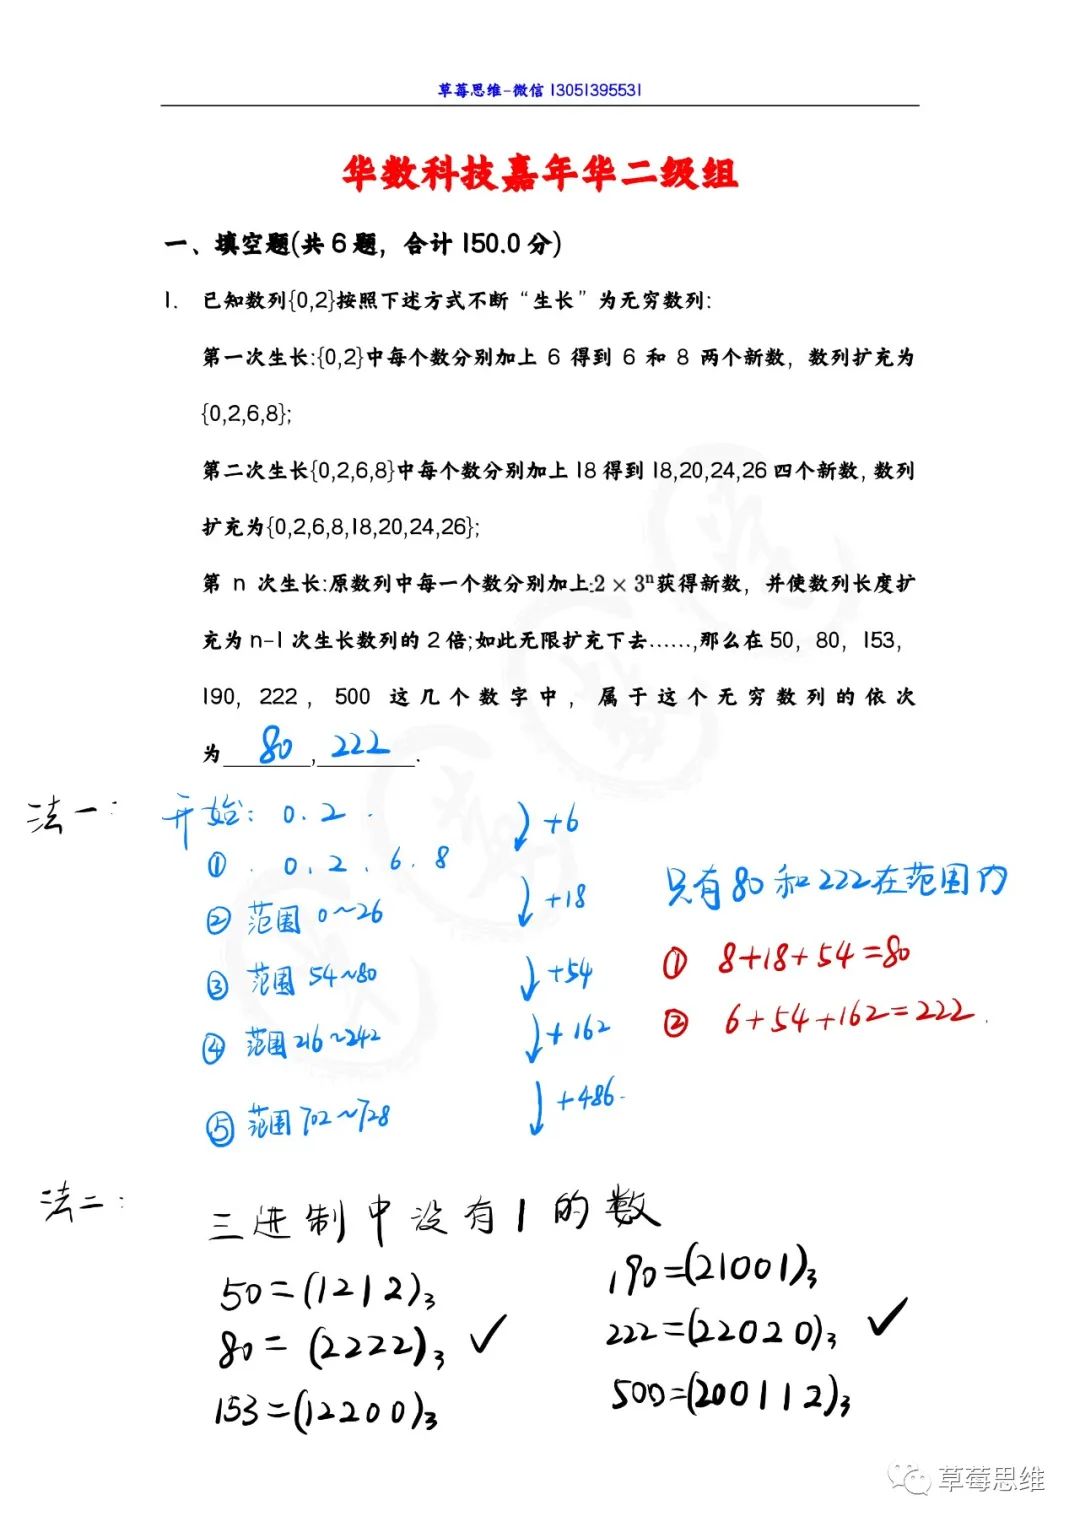 草莓思维-微信 13051395531
华数科技嘉年华二级组
一、填空题(共 6 题，合计 150.0 分)
1. 已知数列{0,2}按照下述方式不断“生长”为无穷数列:
第一次生长:{0,2}中每个数分别加上 6 得到 6 和 8 两个新数，数列扩充为
{0,2,6,8};
第二次生长{0,2,6,8}中每个数分别加上 18 得到 18,20,24,26 四个新数,数列
扩充为{0,2,6,8,18,20,24,26};
第 n 次生长:原数列中每一个数分别加上:2 × 3ⁿ获得新数，并使数列长度扩
充为 n-1 次生长数列的 2 倍;如此无限扩充下去……,那么在 50，80，153，
190，222，500 这几个数字中，属于这个无穷数列的依次
为 80 , 222 .
法一: 开始: 0. 2 . ↓ +6
① . 0. 2 . 6. 8
↓ +18 只有 80 和 222 在范围内
② 范围 0~26
③ 范围 54~80 ↓ +54 ① 8+18+54=80
④ 范围 216~242 ↓ +162 ② 6+54+162=222 .
⑤ 范围 702~728 ↓ +486.
法二: 三进制中没有 1 的数
50=(1212)₃ 190=(21001)₃
80=(2222)₃ ✓ 222=(22020)₃ ✓
153=(12200)₃ 500=(200112)₃
草莓思维